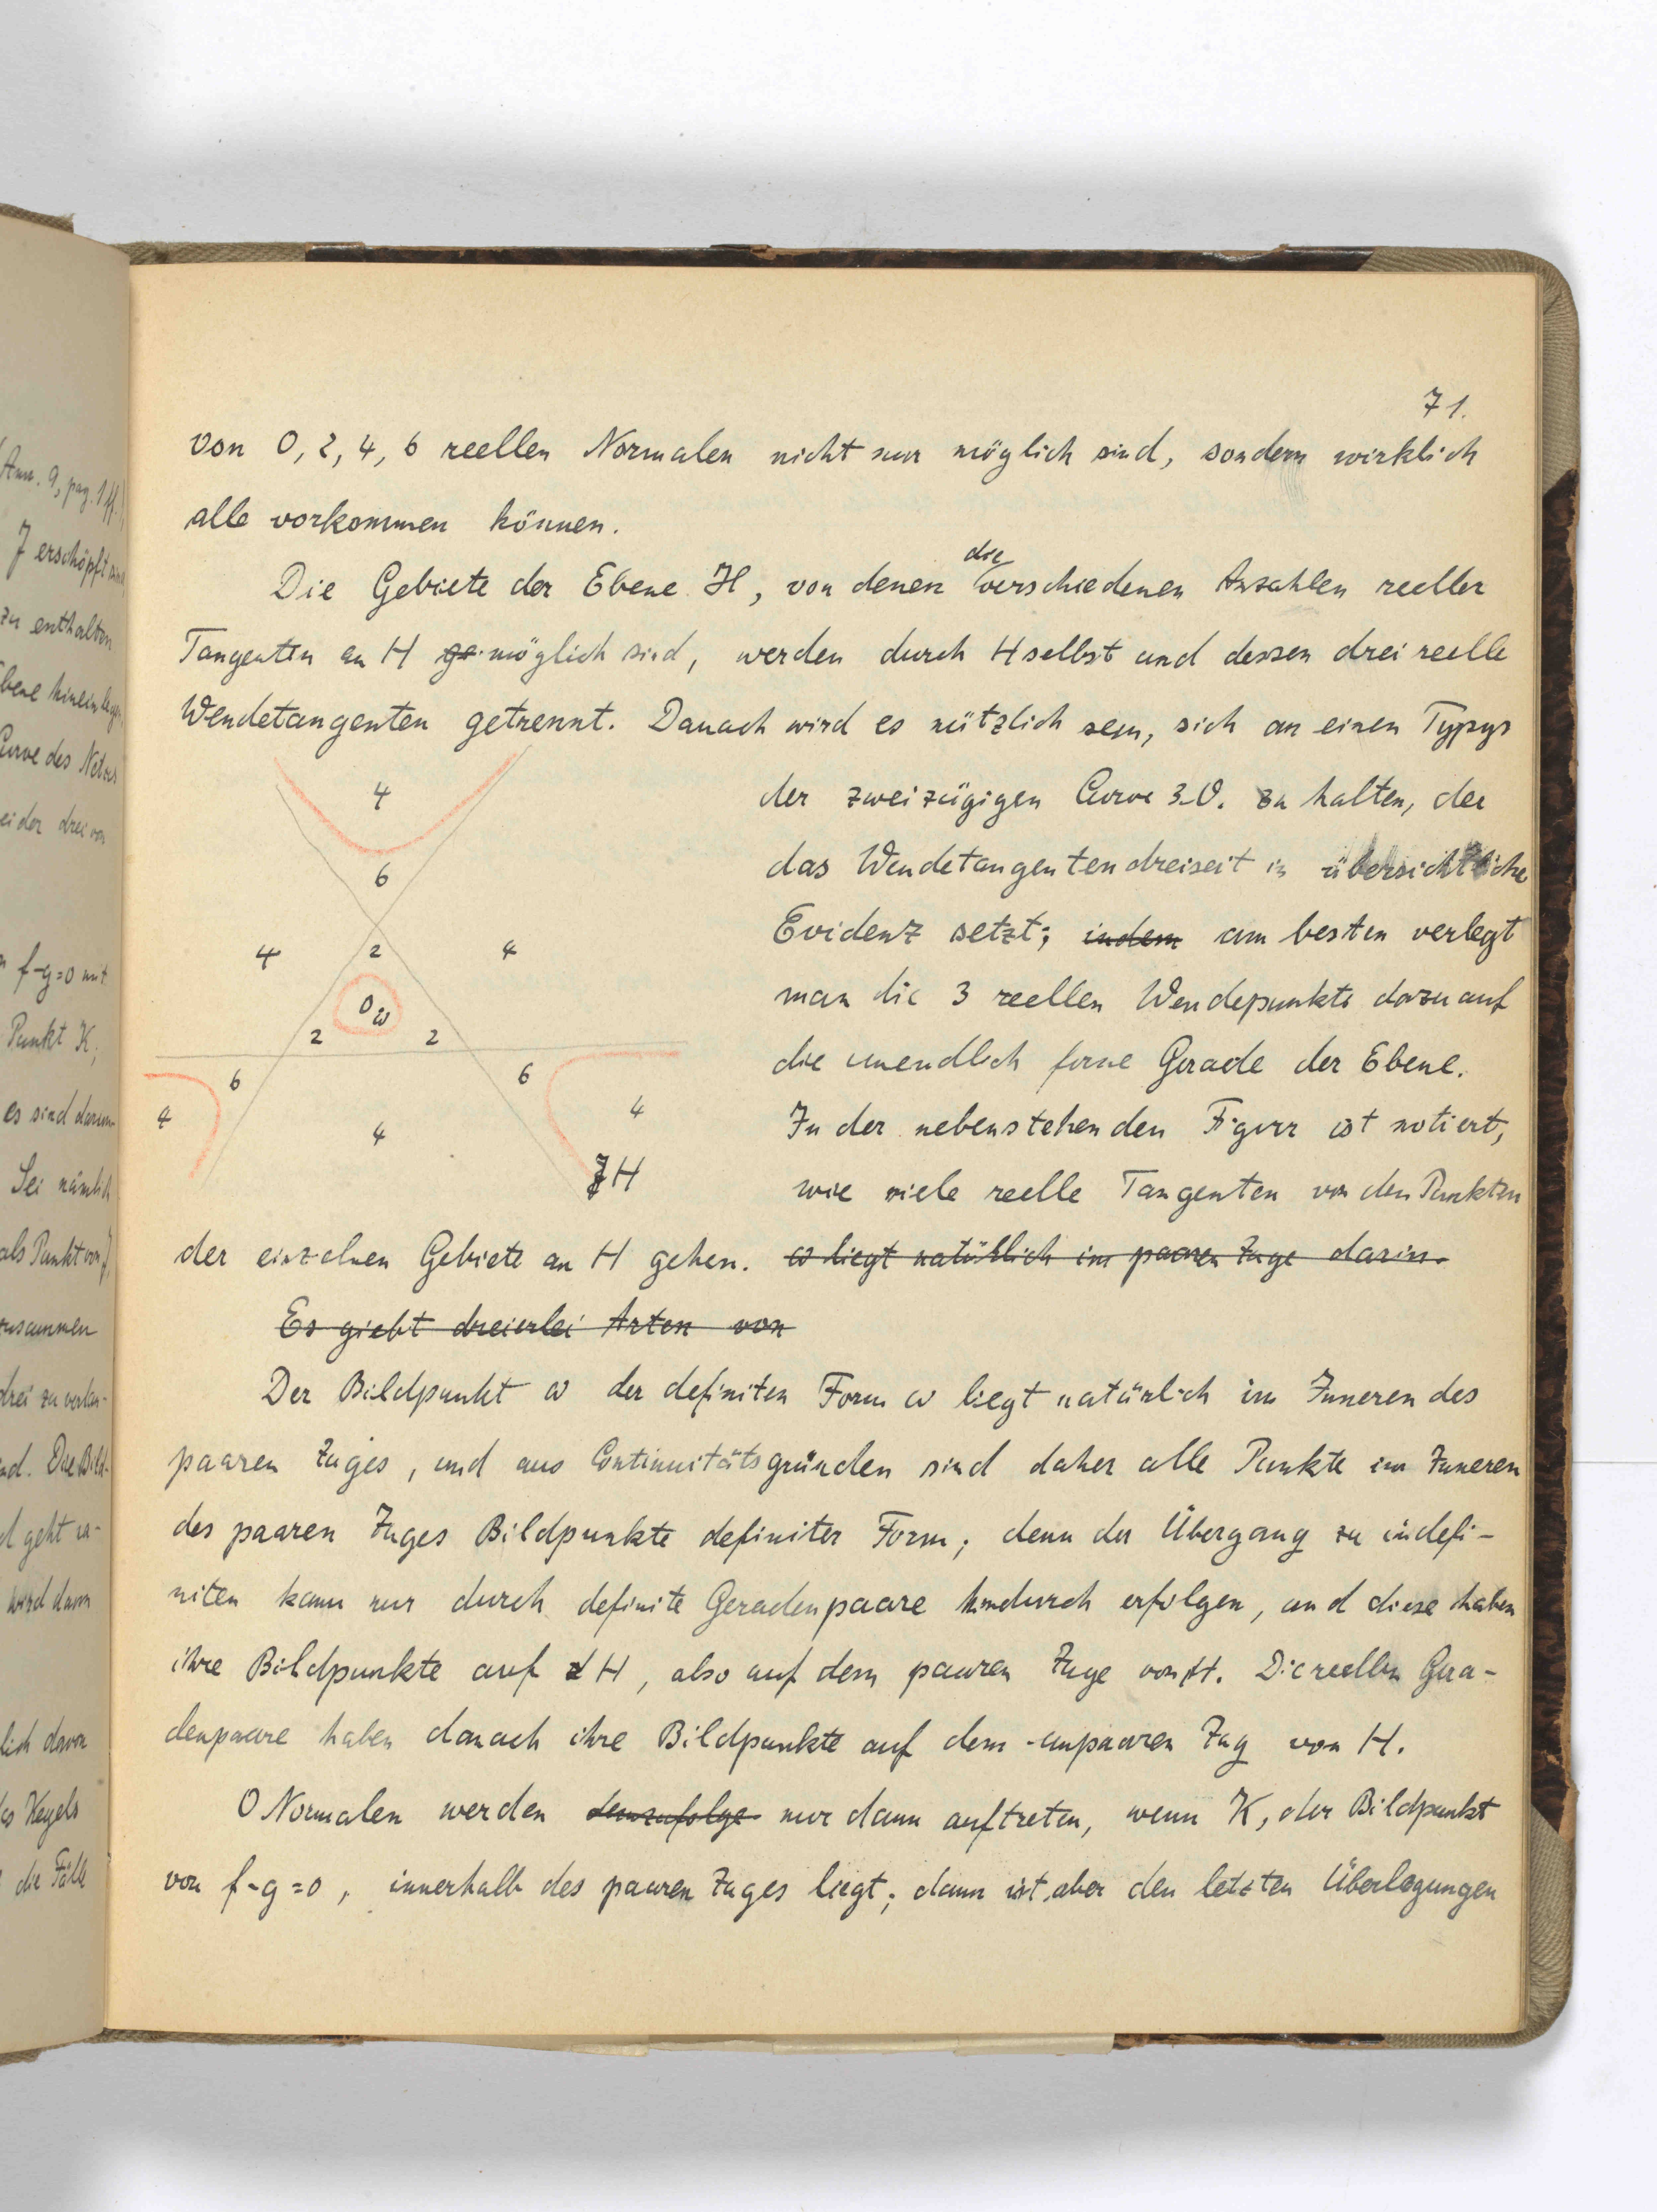 71.
von 0, 2, 4, 6 reellen Normalen nicht nur möglich sind, sondern wirklich
alle vorkommen können.
Die Gebiete der Ebene H, von denen die verschiedenen Anzahlen reeller
Tangenten an H möglich sind, werden durch H selbst und dessen drei reelle
Wendetangenten getrennt. Danach wird es nützlich sein, sich an einen Typus
der zweizügigen Curve 3.O. zu halten, der
das Wendetangentendreiseit in übersichtliche
Evidenz setzt; indem am besten verlegt
man die 3 reellen Wendepunkte dazu auf
die unendlich ferne Gerade der Ebene.
In der nebenstehenden Figur ist notiert,
wie viele reelle Tangenten von den Punkten
4
6
4
2
4
0 ω
2
2
6
6
4
4
4
H
der einzelnen Gebiete an H gehen. ω liegt natürlich im paaren Zuge darin.
Es giebt dreierlei Arten von
Der Bildpunkt ω der definiten Form ω liegt natürlich im Inneren des
paaren Zuges, und aus Continuitätsgründen sind daher alle Punkte im Inneren
des paaren Zuges Bildpunkte definiter Form; denn der Übergang zu indefi-
niten kann nur durch definite Geradenpaare hindurch erfolgen, und diese haben
ihre Bildpunkte auf H, also auf dem paaren Zuge von H. Die reellen Gera-
denpaare haben danach ihre Bildpunkte auf dem unpaaren Zug von H.
0 Normalen werden demzufolge nur dann auftreten, wenn K, der Bildpunkt
von f-g=0, innerhalb des paaren Zuges liegt; dann ist aber den letzten Überlegungen
Ann. 9, pag. 1 ff.
J erschöpft
zu enthalten
Ebene hineinlegen
Curve des Netzes
drei von
f-g=0 mit
Punkt K;
es sind darum
Sei nämlich
als Punkt von J
zusammen
drei zu
Die Bild-
geht
wird dann
davon
Kegels
die Fälle